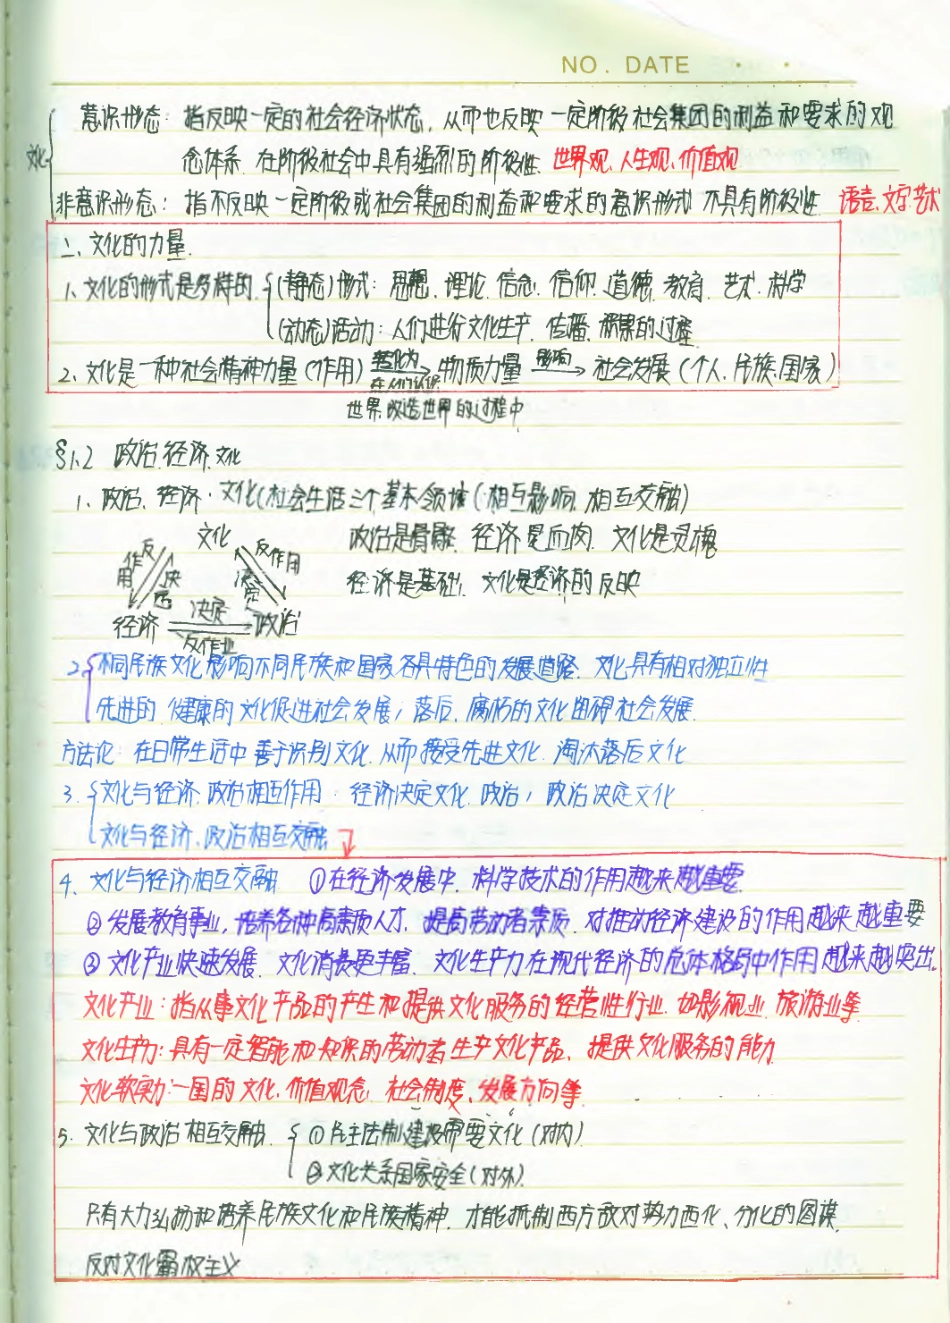 NO. DATE
意识形态：指反映一定的社会经济状态，从而也反映一定阶级社会集团的利益和要求的观
文化
念体系 在阶级社会中具有强烈的阶级性 世界观、人生观、价值观
非意识形态：指不反映一定阶级或社会集团的利益和要求的意识形式 不具有阶级性 语言、文字、艺术
二、文化的力量
1、文化的形式是多样的 (静态)形式：思想、理论、信念、信仰、道德、教育、艺术、科学
(动态)活动：人们进行文化生产、传播、积累的过程
2、文化是一种社会精神力量（作用） 转化为 物质力量 影响 社会发展（个人、民族、国家）
在人们认识
世界、改造世界的过程中
§1.2 政治、经济、文化
1、政治、经济、文化(社会生活三个基本领域（相互影响，相互交融）
文化 政治是骨骼 经济是血肉 文化是灵魂
反作用 决定 决定 反作用 经济是基础，文化是经济的反映
经济 决定 政治
反作业
2、不同民族文化影响不同民族和国家各具特色的发展道路 文化具有相对独立性
先进的、健康的文化促进社会发展；落后、腐朽的文化阻碍社会发展
方法论：在日常生活中善于识别文化，从而接受先进文化，淘汰落后文化
3. 文化与经济、政治相互作用：经济决定文化、政治；政治决定文化
文化与经济、政治相互交融
4、文化与经济相互交融 ①在经济发展中，科学技术的作用越来越重要
②发展教育事业，培养各种高素质人才，提高劳动者素质，对推动经济建设的作用越来越重要
③文化产业快速发展 文化消费更丰富 文化生产力在现代经济的总体格局中作用越来越突出。
文化产业：指从事文化产品的产生和提供文化服务的经营性行业 如影视业、旅游业等
文化生产力：具有一定智能和知识的劳动者生产文化产品、提供文化服务的能力
文化软实力：一国的文化、价值观念、社会制度、发展方向等
5. 文化与政治相互交融 ①民主法制建设需要文化（对内）
②文化关系国家安全（对外）
只有大力弘扬和培养民族文化和民族精神，才能抵制西方敌对势力西化、分化的图谋
反对文化霸权主义